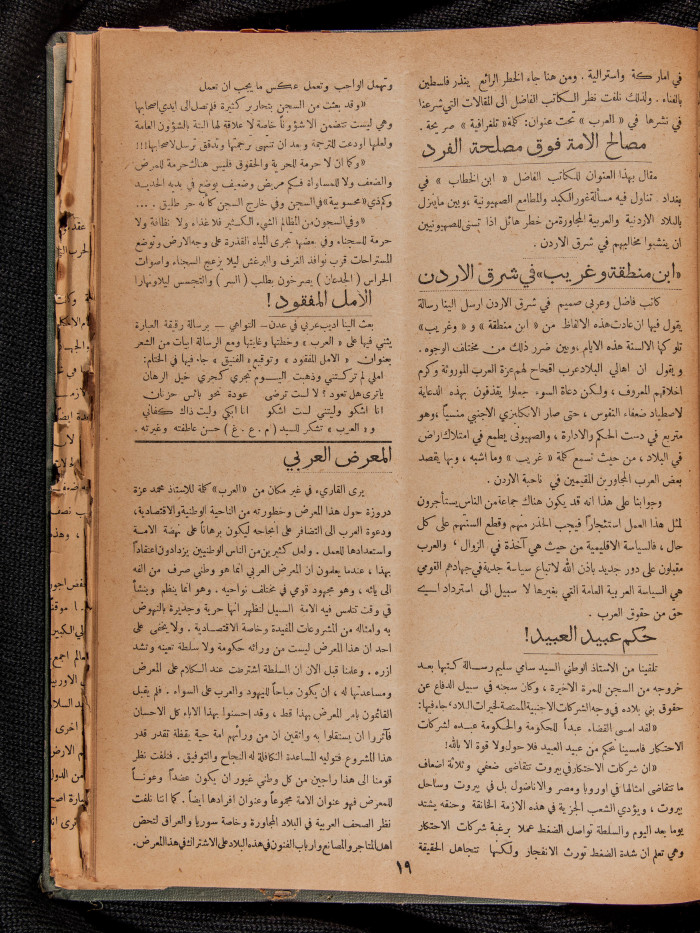 في اماركة واسترالية . ومن هنا جاء الخطر الرائع ينذر فلسطين
بالفناء . ولذلك نلفت نظر الكاتب الفاضل الى المقالات التي شرعنا
في نشرها في « العرب » تحت عنوان: كلمة « تلغرافية » صريحة .
مصالح الامة فوق مصلحة الفرد
مقال بهذا العنوان للكاتب الفاضل « ابن الخطاب » في
بغداد . تناول فيه مسألة غور الكبد والمطامع الصهيونية ، وبين ما ينزل
بالبلاد الاردنية والعربية المجاورة من خطر هائل اذا تسنى للصهيونيين
ان ينشبوا مخاليبهم في شرق الاردن .
«ابن منطقة وغريب» في شرق الاردن
كاتب فاضل وعربي صميم في شرق الاردن ارسل الينا رسالة
يقول فيها ان عادت هذه الالفاظ من « ابن منطقة » و « وغريب »
تلوكها الالسنة هذه الايام ، وبين ضرر ذلك من مختلف الوجوه .
ويقول ان اهالي البلاد عرب اقحاح لهم عزة العرب الموروثة وكرم
اخلاقهم المعروف ، ولكن دعاة السوء جعلوا يقذفون بهذه الدعاية
لاصطياد ضعفاء النفوس ، حتى صار الانكليزي الاجنبي منسياً ، وهو
متربع في دست الحكم والادارة ، والصهيوني يطمع في امتلاك اراض
في البلاد ، من حيث تسمع كلمة « غريب » وما اشبه ، وبها يقصد
بعض العرب المجاورين المقيمين في ناحية الاردن .
وجوابنا على هذا انه قد يكون هناك جماعة من الناس يستأجرون
لمثل هذا العمل استئجاراً فيجب الحذر منهم وقطع السنتهم على كل
حال ، فالسياسة الاقليمية من حيث هي آخذة في الزوال ، والعرب
مقبلون على دور جديد باذن الله لاتباع سياسة جدية في جهادهم القومي
هي السياسة العربية العامة التي بغيرها لا سبيل الى استرداد اسي
حق من حقوق العرب .
حكم عبيد العبيد!
تلقينا من الاستاذ الوطني السيد سامي سليم رسالة كتبها بعد
خروجه من السجن للمرة الاخيرة ، وكان سجنه في سبيل الدفاع عن
حقوق بني بلاده في وجه الشركات الاجنبية الممتصة لخيرات البلاد ، جاء فيها:
«لقد امسى القضاء عبداً للحكومة والحكومة عبده لشركات
الاحتكار فامسينا نحكم من عبيد العبيد فلا حول ولا قوة الا بالله!
«ان شركات الاحتكار في بيروت تتقاضى ضعفي وثلاثة اضعاف
ما تتقاضى امثالها في اوروبا ومصر والاناضول بل في بيروت وساحل
بيروت ، ويؤدي الشعب الجزية في هذه الازمة الخانقة وحنقه يشتد
يوما بعد اليوم والسلطة تواصل الضغط عملا برغبة شركات الاحتكار
وهي تعلم ان شدة الضغط تورث الانفجار ولكنها تتجاهل الحقيقة
وتهمل الواجب وتعمل عكس ما يجب ان تعمل
«وقد بعثت من السجن بتحارير كثيرة فلم تصل الى ايدي اصحابها
وهي ليست تتضمن الا شؤوناً خاصة لا علاقة لها البتة بالشؤون العامة
ولعلها اودعت للترجمة وبعد ان تنتهى ترجمتها وتدقق ترسل لاصحابها!!!
«وكما ان لا حرمة للحرية والحقوق فليس هناك حرمة للمرض
والضعف ولا للمساواة فكم مريض وضعيف يوضع في يديه الحديد
وكم ذي «محسوبية» في السجن وفي خارج السجن كأنه حر طليق . . .
«وفي السجون من المظالم الشيء الكثير فلا غذاء ولا نظافة ولا
حرمة للسجناء وفي بعضها تجرى المياه القذرة على وجه الارض وتوضع
المستراحات قرب نوافذ الغرف والبرغش ليلا يزعج السجناء واصوات
الحراس ( الجدعان ) يصرخون بطلب ( السبر ) والتجسس ليلا ونهارا
الامل المفقود!
بعث الينا اديب عربي في عدن — النواحي — برسالة رقيقة العبارة
يثني فيها على « العرب » وخطتها وغايتها ومع الرسالة ابيات من الشعر
بعنوان « الامل المفقود » وتوقيع « الفنيق » جاء فيها في الختام:
املي لم تركتني وذهبت اليـوم تجري كجري خيل الرهان
ياترى هل تعود ؟ لا لست ترضى عودة نحو بائس حزنان
انا اشكو وليتني لست اشكو انا ابكي وليت ذاك كفاني
و « العرب » تشكر للسيد ( م . ع . غ ) حسن عاطفته وغيرته .
المعرض العربي
يرى القارىء في غير مكان من «العرب» كلمة للاستاذ محمد عزة
دروزة حول هذا المعرض وخطورته من الناحية الوطنية والاقتصادية،
ودعوة العرب الى التضافر على انجاحه ليكون برهاناً على نهضة الامة
واستعدادها للعمل . ولعل كثيرين من الناس الوطنيين يزدادون اعتقاداً
بهذا ، عندما يعلمون ان المعرض العربي انما هو وطني صرف من الفه
الى يائه ، وهو مجهود قومي في مختلف نواحيه . وهو انما ينظم وينشأ
في وقت تتلمس فيه الامة السبيل لتظهر انها حرية وجديرة بالنهوض
به وامثاله من المشروعات المفيدة وخاصة الاقتصادية . ولا يخفى على
احد ان هذا المعرض ليس من ورائه حكومة ولا سلطة تعينه وتشد
ازره . وعلمنا قبل الان ان السلطة اشترطت عند الكلام على المعرض
ومساعدتها له ، ان يكون مباحاً لليهود والعرب على السواء . فلم يقبل
القائمون بامر المعرض بهذا قط ، وقد احسنوا بهذا الاباء كل الاحسان
فآثروا ان يستقلوا به واثقين ان من ورائهم امة حية يقظة تقدر قدر
هذا المشروع فتوليه المساعدة الكافلة له النجاح والتوفيق . فنلفت نظر
قومنا الى هذا راجين من كل وطني غيور ان يكون عضداً وعونـاً
للمعرض فهو عنوان الامة مجموعاً وعنوان افرادها ايضاً . كما اننا نلفت
نظر الصحف العربية في البلاد المجاورة وخاصة سوريا والعراق لتحض
اهل المتاجر والمصانع وارباب الفنون في هذه البلاد على الاشتراك في هذا المعرض.
١٩